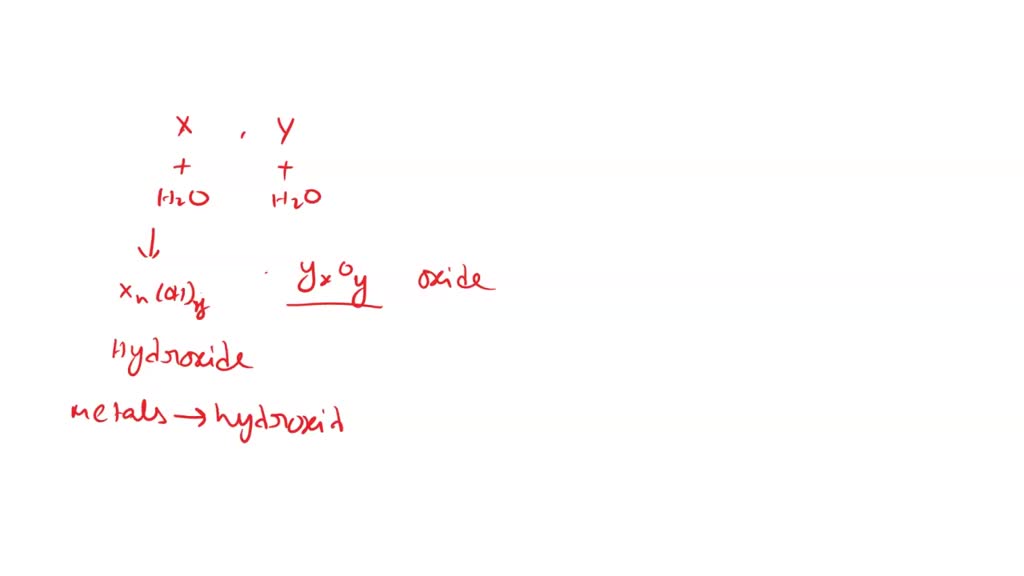 X , Y
+ +
H₂O H₂O
↓
Xₙ(OH)y YxOy oxide
Hydroxide
metals → hydroxid